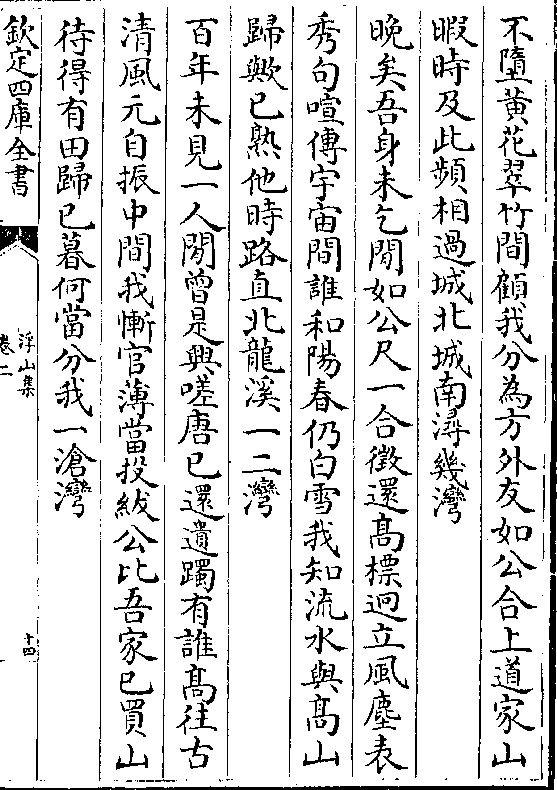 不墮黄花翠竹間顧我分為方外友如公合上道家山
暇時及此頻相過城北城南潯幾灣
晚矣吾身未乞閒如公尺一合徴還髙標迥立風塵表
秀句喧傳宇宙間誰和陽春仍白雪我知流水與髙山
歸歟已熟他時路直北龍溪一二灣
百年未見一人閒曽是興嗟唐已還遺躅有誰髙往古
清風元自振中間我慚官薄當投紱公比吾家已買山
待得有田歸已暮何當分我一滄灣
欽定四庫全書
浮山集
卷二
十四